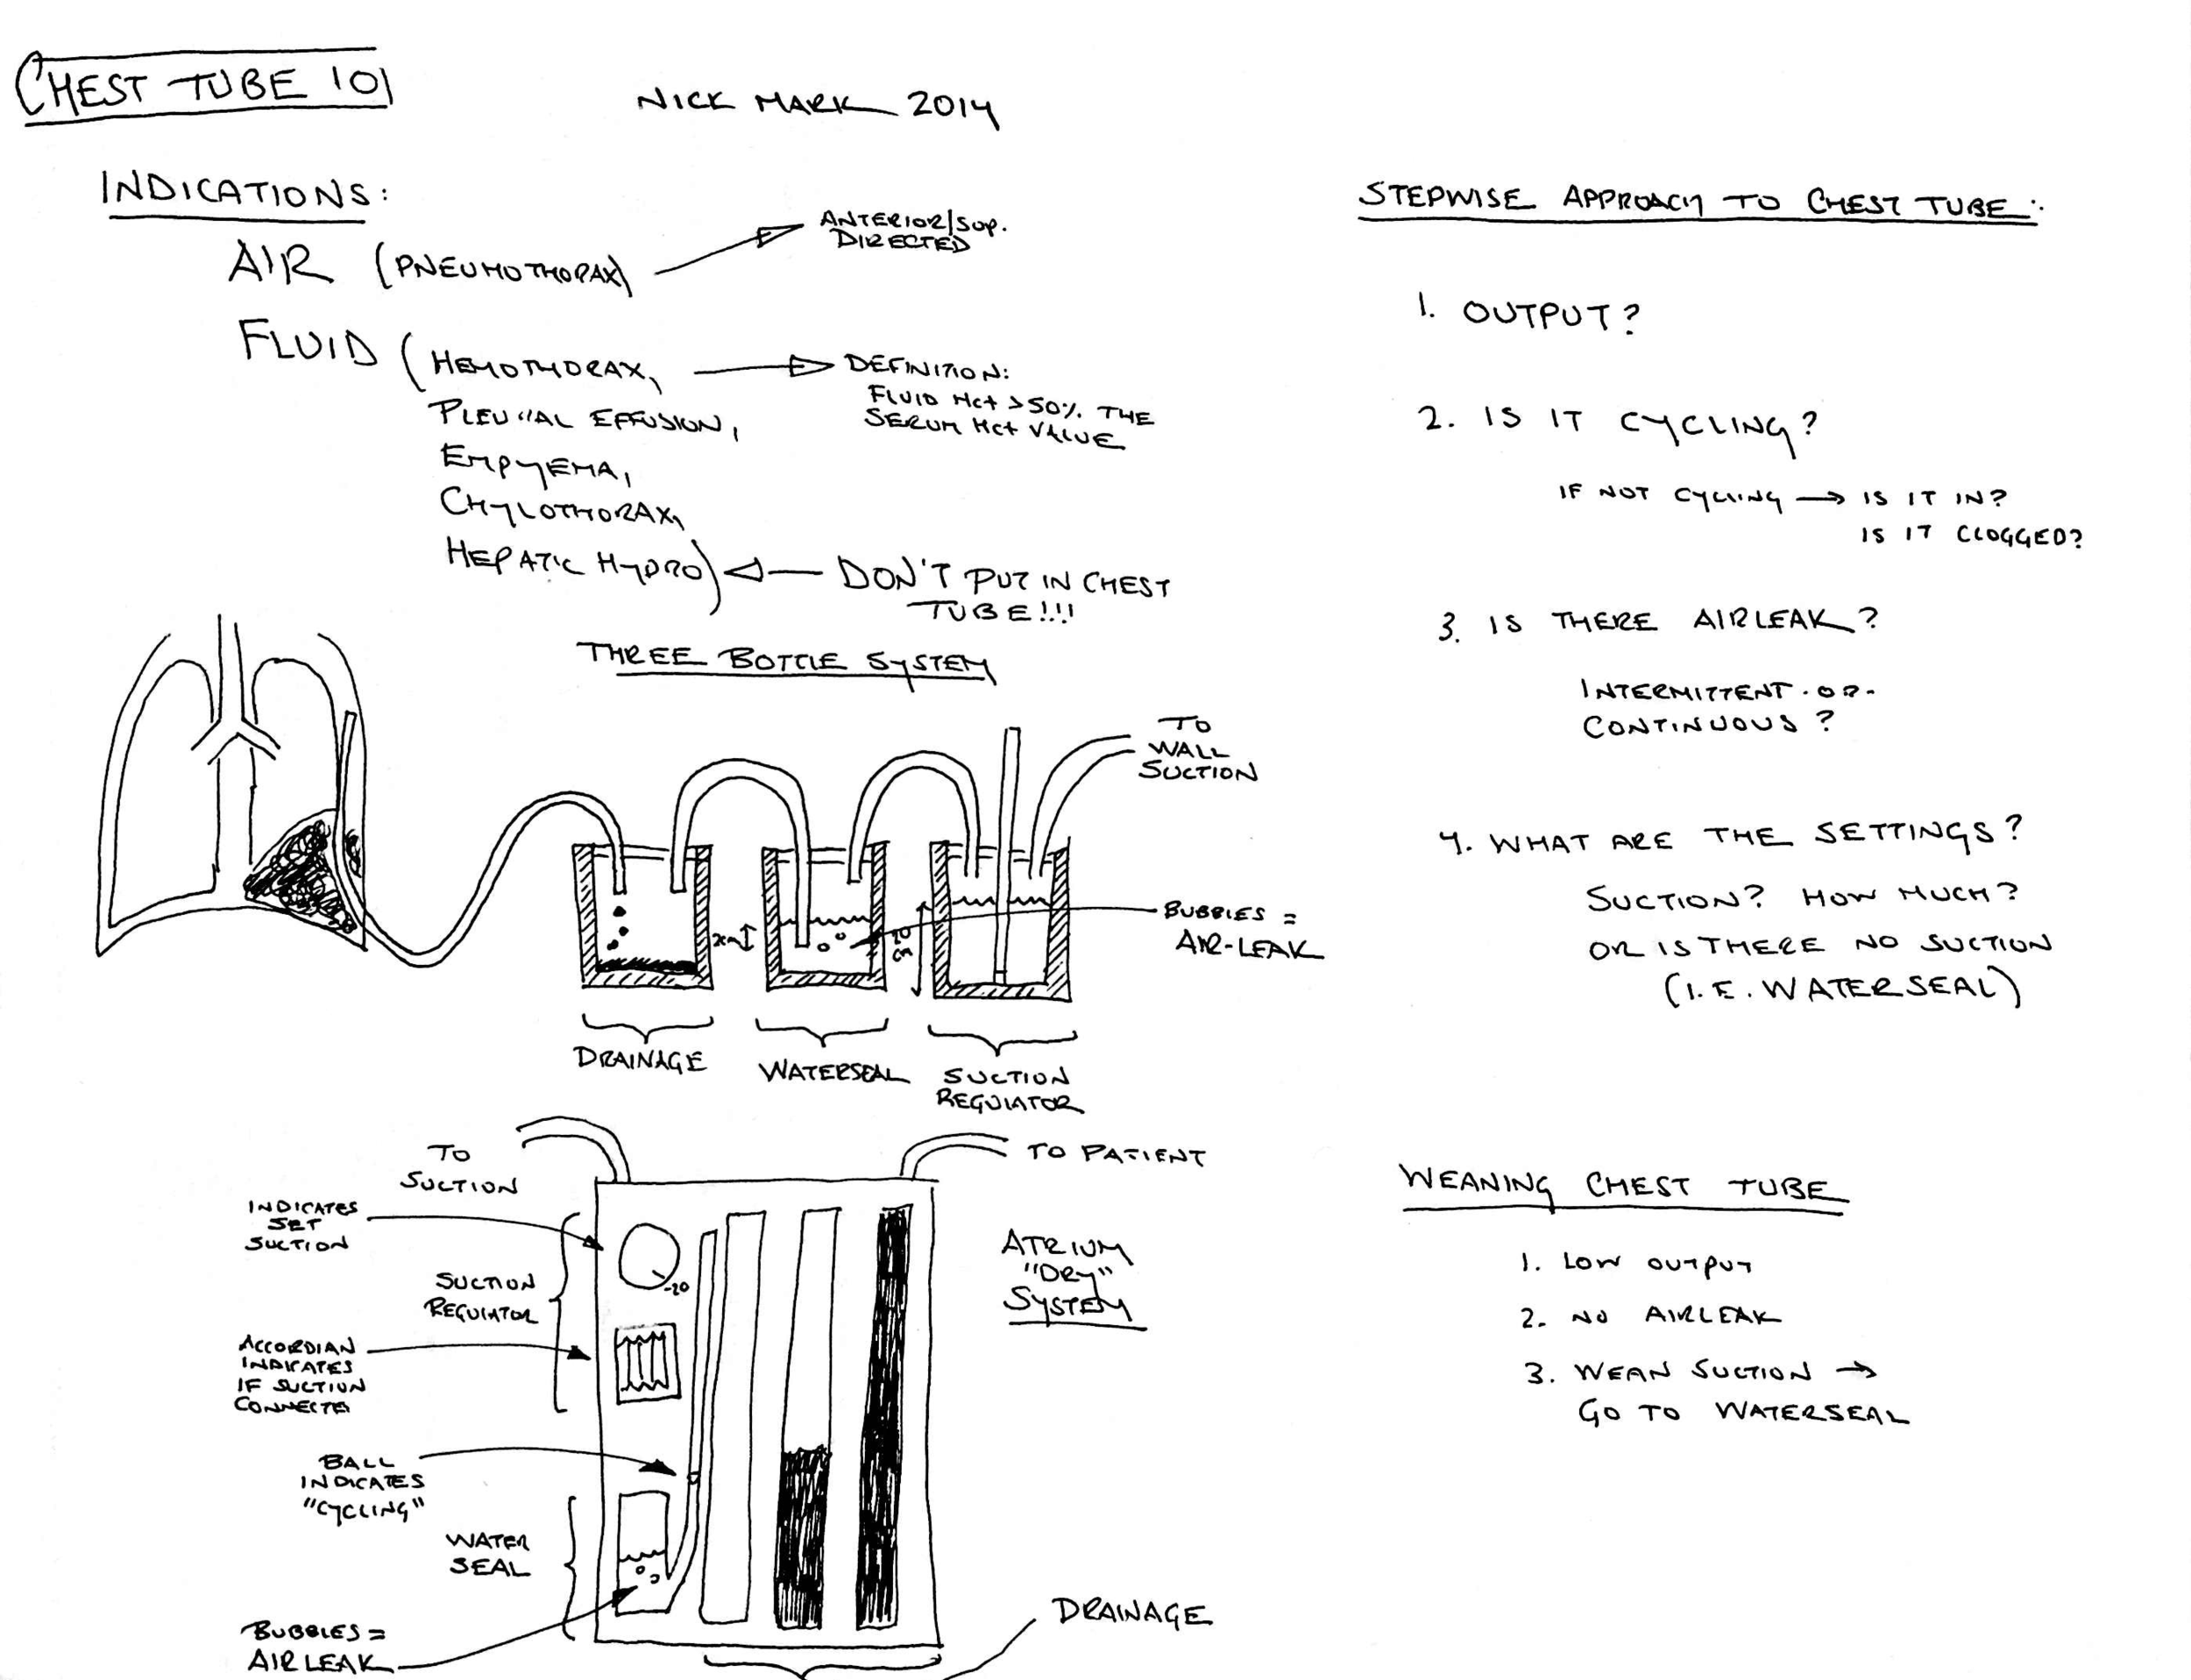 CHEST TUBE 101
NICK MARK 2014
INDICATIONS:
AIR (PNEUMOTHORAX)
ANTERIOR/SUP.
DIRECTED
FLUID (HEMOTHORAX,
PLEURAL EFFUSION,
EMPYEMA,
CHYLOTHORAX,
HEPATIC HYDRO)
DEFINITION:
FLUID Hct >50% THE
SERUM Hct VALUE
DON'T PUT IN CHEST
TUBE!!!
THREE BOTTLE SYSTEM
TO
WALL
SUCTION
2cm
20
cm
BUBBLES =
AIR-LEAK
DRAINAGE
WATERSEAL
SUCTION
REGULATOR
TO
SUCTION
TO PATIENT
INDICATES
SET
SUCTION
SUCTION
REGULATOR
-20
ACCORDIAN
INDICATES
IF SUCTION
CONNECTED
BALL
INDICATES
"CYCLING"
WATER
SEAL
BUBBLES =
AIR LEAK
ATRIUM
"DRY"
SYSTEM
DRAINAGE
STEPWISE APPROACH TO CHEST TUBE:
1. OUTPUT?
2. IS IT CYCLING?
IF NOT CYCLING → IS IT IN?
IS IT CLOGGED?
3. IS THERE AIRLEAK?
INTERMITTENT -OR-
CONTINUOUS?
4. WHAT ARE THE SETTINGS?
SUCTION? HOW MUCH?
OR IS THERE NO SUCTION
(I.E. WATERSEAL)
WEANING CHEST TUBE
1. LOW OUTPUT
2. NO AIRLEAK
3. WEAN SUCTION →
GO TO WATERSEAL